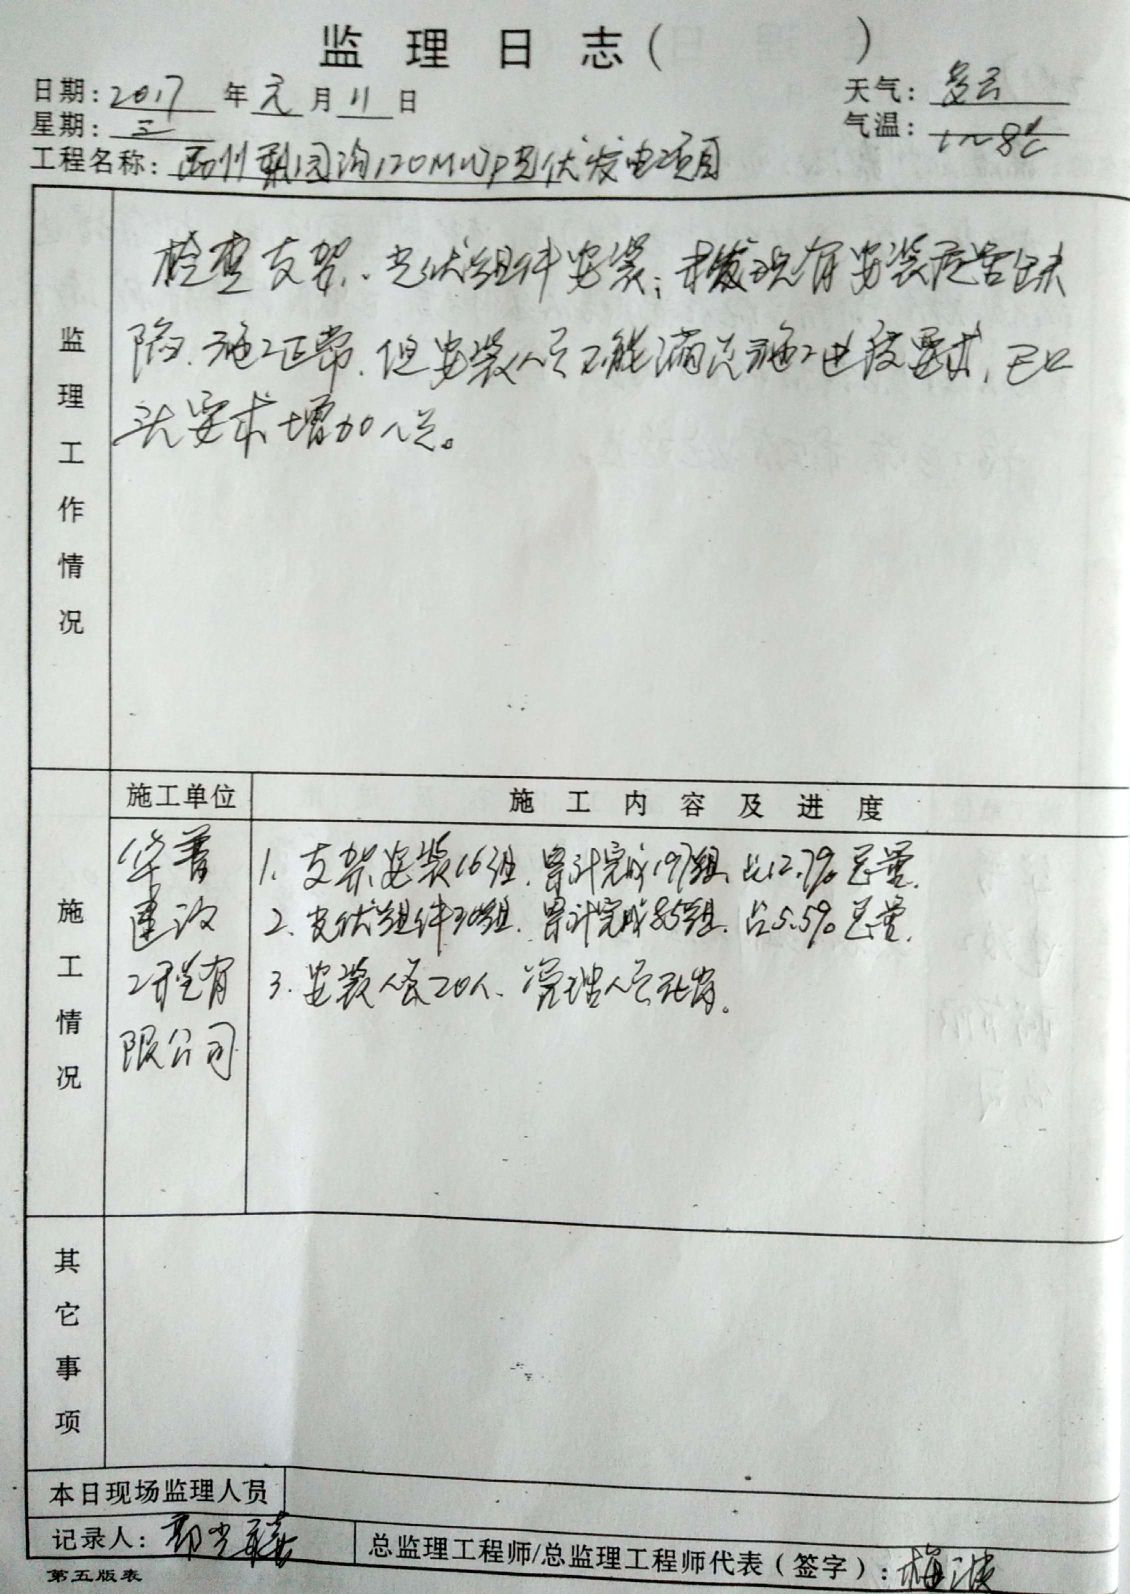 监理日志( )
日期: 2017 年 元 月 11 日
天气: 多云
星期: 三
气温: 1~8℃
工程名称: 120MWP光伏发电项目
监理工作情况
检查支架、光伏组件安装,未发现有安装质量缺
陷,施工正常,但安装人员不能满足施工进度要求,已口
头要求增加人员。
施工单位
施工内容及进度
施工情况
华普
建设
工程有
限公司
1. 支架安装16组,累计完成197组,占12.7%总量。
2. 光伏组件30组,累计完成85组,占5.5%总量。
3. 安装人员20人,管理人员在岗。
其它事项
本日现场监理人员
记录人:
总监理工程师/总监理工程师代表(签字): 梅波
第五版表